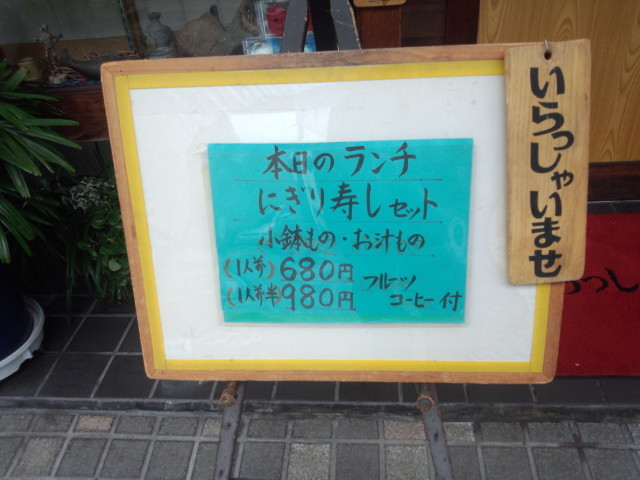 本日のランチ
にぎり寿しセット
小鉢もの・お汁もの
(1人前)680円
(1人前半)980円
フルーツ
コーヒー付
いらっしゃいませ
らっし